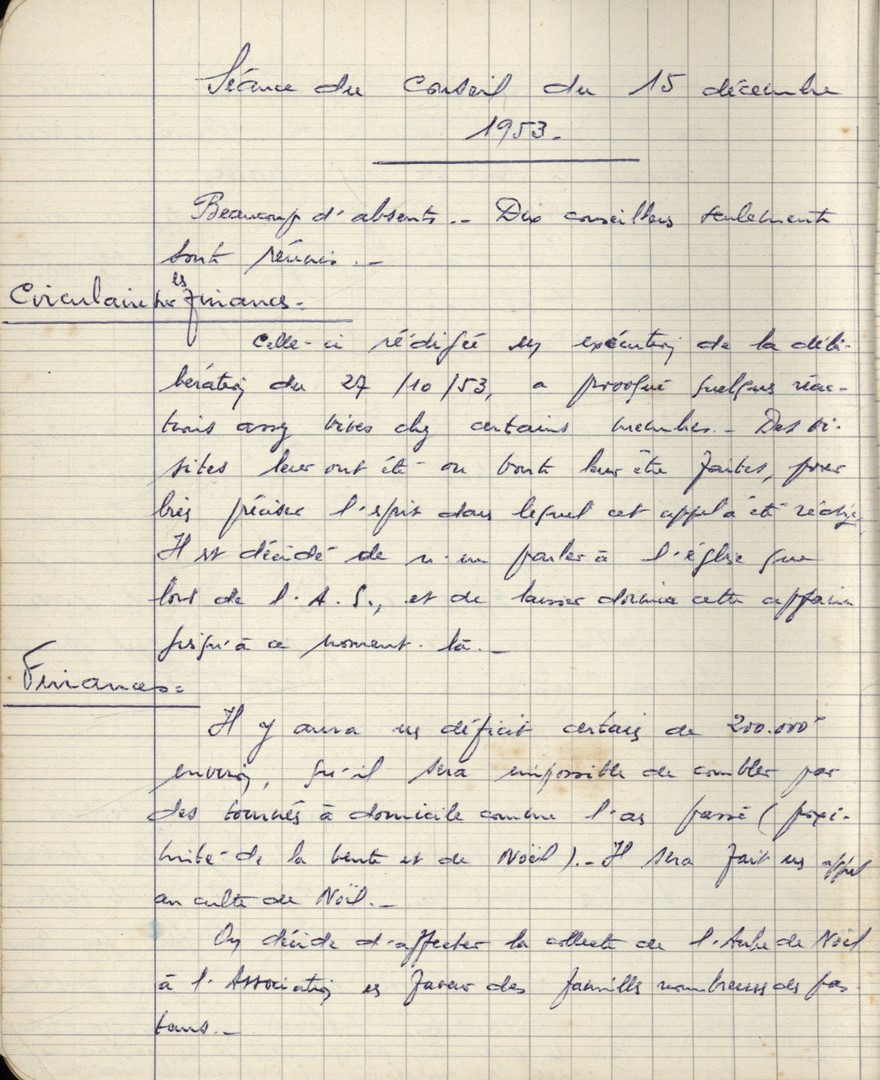 Séance du Conseil du 15 décembre
1953.
Beaucoup d'absents.- Dix conseillers seulement
sont réunis.-
Circulaire les finances.
Celle-ci rédigée en exécution de la déli-
bération du 27/10/53, a provoqué quelques réac-
tions assez vives chez certains membres.- Des vi-
sites leur ont été ou vont leur être faites, pour
bien préciser l'esprit dans lequel cet appel a été rédigé.
Il est décidé de n'en parler à l'église que
lors de l'A.G., et de laisser dormir cette affaire
jusqu'à ce moment-là.-
Finances.
Il y aura un déficit certain de 200.000
environ, qu'il sera impossible de combler par
des tournées à domicile comme l'an passé (proxi-
mité de la vente et de Noël).- Il sera fait un appel
au culte de Noël.-
On décide d'affecter la collecte de l'Aube de Noël
à l'Association en faveur des familles nombreuses des pas-
teurs.-